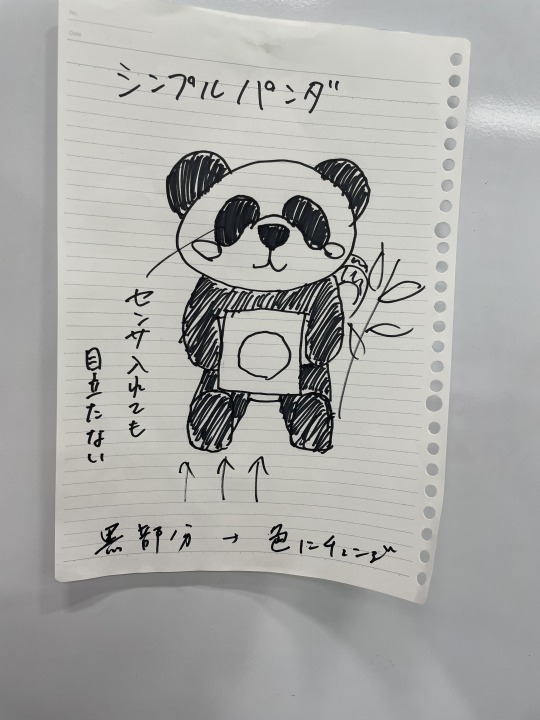 シンプルパンダ
センサ入れても
目立たない
黒部分 → 色にチェンジ